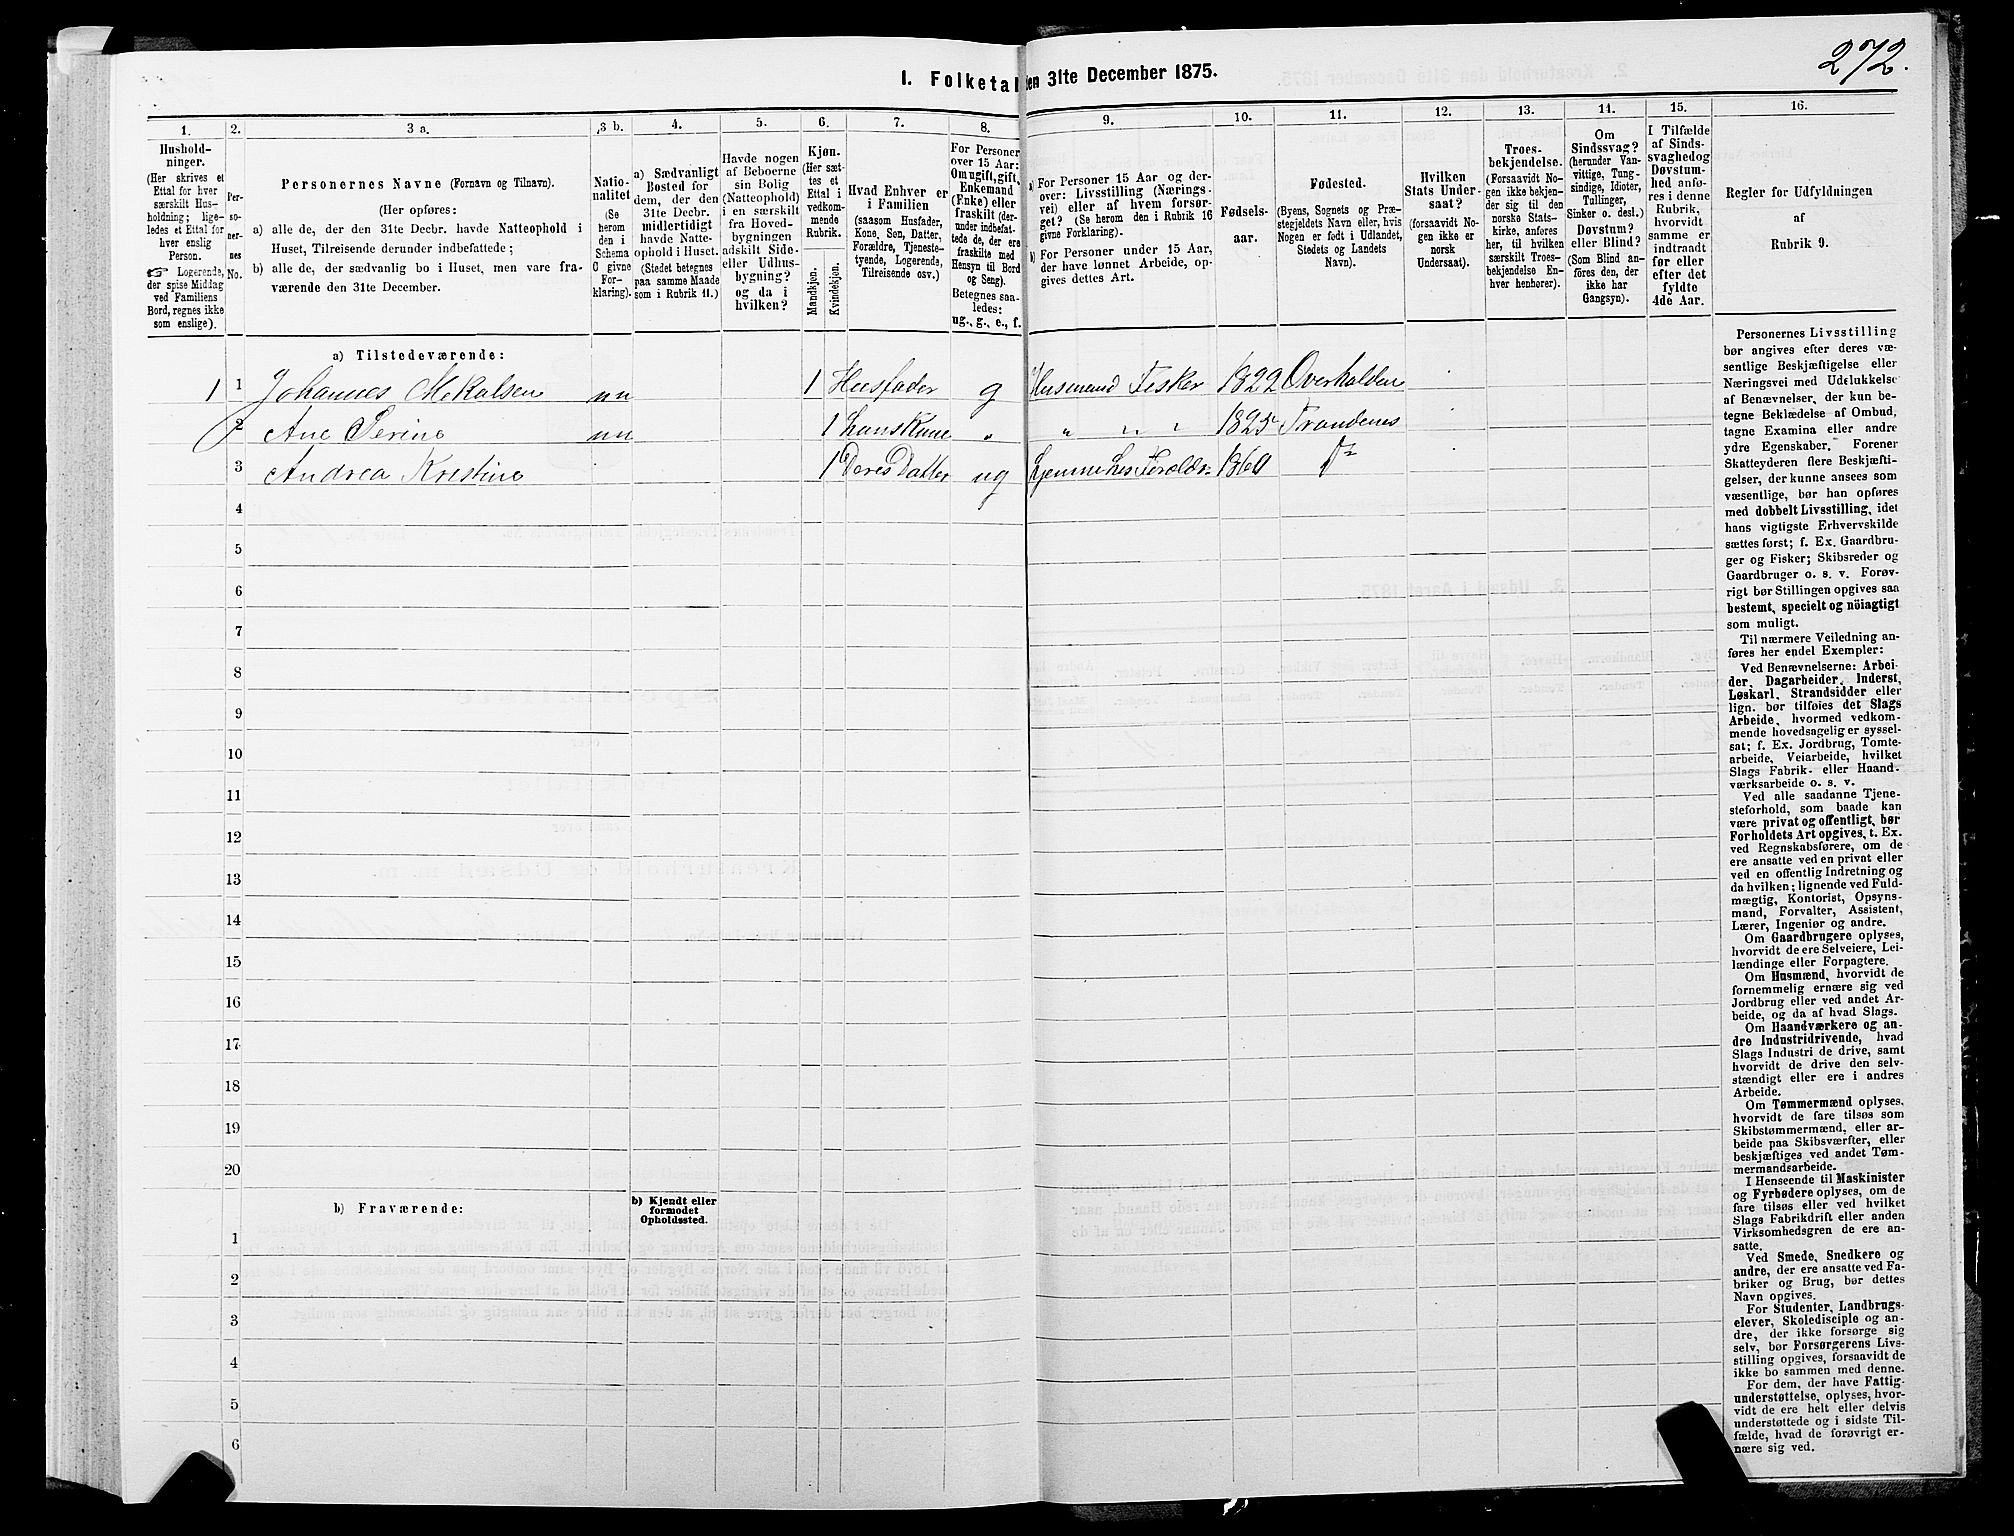 272.
I. Folketal den 31te December 1875.
1. 2. 3 a. 3 b. 4. 5. 6. 7. 8. 9. 10. 11. 12. 13. 14. 15. 16.
Hushold-
ninger.
(Her skrives et
Ettal for hver
særskilt Hus-
holdning; lige-
ledes et Ettal for
hver enslig
Person.
☞ Logerende,
der spise Middag
ved Familiens
Bord, regnes ikke
som enslige).
Per-
so-
ner-
nes
No.
Personernes Navne (Fornavn og Tilnavn).
(Her opføres:
a) alle de, der den 31te Decbr. havde Natteophold i
Huset, Tilreisende derunder indbefattede;
b) alle de, der sædvanlig bo i Huset, men vare fra-
værende den 31te December.
Natio-
nalitet
(Se
herom
den i
Schema
C givne
For-
klaring).
a) Sædvanligt
Bosted for
dem, der den
31te Decbr.
midlertidigt
havde Natte-
ophold i Huset.
(Stedet betegnes
paa samme Maade
som i Rubrik 11.)
Havde nogen
af Beboerne
sin Bolig
(Natteophold)
i en særskilt
fra Hoved-
bygningen
adskilt Side-
eller Udhus-
bygning?
og da i
hvilken?
Kjøn.
(Her sæt-
tes et
Ettal i
vedkom-
mende
Rubrik.
Mandkjøn.
Kvindekjøn.
Hvad Enhver er
i Familien
(saasom Husfader,
Kone, Søn, Datter,
Forældre, Tjeneste-
tyende, Logerende,
Tilreisende osv.)
For Personer
over 15 Aar:
Om ugift, gift,
Enkemand
(Enke) eller
fraskilt (der-
under indbefat-
tede de, der ere
fraskilte med
Hensyn til Bord
og Seng).
Betegnes saa-
ledes:
ug., g., e., f.
a) For Personer 15 Aar og der-
over: Livsstilling (Nærings-
vei) eller af hvem forsør-
get? (Se herom den i Rubrik 16
givne Forklaring).
b) For Personer under 15 Aar,
der have lønnet Arbeide, op-
gives dettes Art.
Fødsels-
aar.
Fødested.
(Byens, Sognets og Præ-
stegjeldets Navn eller, hvis
Nogen er født i Udlandet,
Stedets og Landets
Navn).
Hvilken
Stats Under-
saat?
(forsaavidt No-
gen ikke er
norsk
Undersaat).
Troes-
bekjendelse.
(Forsaavidt No-
gen ikke bekjen-
der sig til den
norske Stats-
kirke, anføres
her, til hvilken
særskilt Troes-
bekjendelse En-
hver henhører).
Om
Sindssvag?
(herunder Van-
vittige, Tung-
sindige, Idioter,
Tullinger,
Sinker o. desl.)
Døvstum?
eller Blind?
(Som Blind an-
føres den, der
ikke har
Gangsyn).
I Tilfælde
af Sinds-
svaghed og
Døvstum-
hed anfø-
res i denne
Rubrik,
hvorvidt
samme er
indtraadt
før eller
efter det
fyldte
4de Aar.
Regler for Udfyldningen
af
Rubrik 9.
a) Tilstedeværende:
1 1 Johannes Mekalsen nn 1 Husfader g Husmand Fisker 1822 Overhalden
2 Ane Serine nn 1 hans Kone " " " " 1825 Trondenes
3 Andrea Kristine 1 Deres Datter ug hjemme hos Foreldr 1860 Do
4
5
6
7
8
9
10
11
12
13
14
15
16
17
18
19
20
b) Fraværende:
b) Kjendt eller
formodet
Opholdssted.
1
2
3
4
5
6
Personernes Livsstilling
bør angives efter deres væ-
sentlige Beskjæftigelse eller
Næringsvei med Udelukkelse
af Benævnelser, der kun be-
tegne Beklædelse af Ombud,
tagne Examina eller andre
ydre Egenskaber. Forener
Skatteyderen flere Beskjæfti-
gelser, der kunne ansees som
væsentlige, bør han opføres
med dobbelt Livsstilling, idet
hans vigtigste Erhvervskilde
sættes først; f. Ex. Gaardbru-
ger og Fisker; Skibsreder og
Gaardbruger o. s. v. Forøv-
rigt bør Stillingen opgives saa
bestemt, specielt og nöiagtigt
som muligt.
Til nærmere Veiledning an-
føres her endel Exempler:
Ved Benævnelserne: Arbei-
der, Dagarbeider, Inderst,
Løskarl, Strandsidder eller
lign. bør tilføies det Slags
Arbeide, hvormed vedkom-
mende hovedsagelig er syssel-
sat; f. Ex. Jordbrug, Tomte-
arbeide, Veiarbeide, hvilket
Slags Fabrik- eller Haand-
værksarbeide o. s. v.
Ved alle saadanne Tjene-
steforhold, som baade kan
være privat og offentligt, bør
Forholdets Art opgives, t. Ex.
ved Regnskabsførere, om de
ere ansatte ved en privat eller
ved en offentlig Indretning og
da hvilken; lignende ved Fuld-
mægtig, Kontorist, Opsyns-
mand, Forvalter, Assistent,
Lærer, Ingeniør og andre.
Om Gaardbrugere oplyses,
hvorvidt de ere Selveiere, Lei-
lændinge eller Forpagtere.
Om Husmænd, hvorvidt de
fornemmelig ernære sig ved
Jordbrug eller ved andet Ar-
beide, og da af hvad Slags.
Om Haandværkere og an-
dre Industridrivende, hvad
Slags Industri de drive, samt
hvorvidt de drive den selv-
stændigt eller ere i andres
Arbeide.
Om Tømmermænd oplyses,
hvorvidt de fare tilsøs som
Skibstømmermænd, eller ar-
beide paa Skibsværfter, eller
beskjæftiges ved andet Tøm-
mermandsarbeide.
I Henseende til Maskinister
og Fyrbødere oplyses, om de
fare tilsøs eller ved hvilket
Slags Fabrikdrift eller anden
Virksomhedsgren de ere an-
satte.
Ved Smede, Snedkere og
andre, der ere ansatte ved Fa-
briker og Brug, bør dettes
Navn opgives.
For Studenter, Landbrugs-
elever, Skoledisciple og an-
dre, der ikke forsørge sig
selv, bør Forsørgerens Livs-
stilling opgives, forsaavidt de
ikke bo sammen med denne.
For dem, der have Fattig-
understøttelse, oplyses, hvor-
vidt de ere helt eller delvis
understøttede og i sidste Til-
fælde, hvad de forøvrigt er-
nære sig ved.